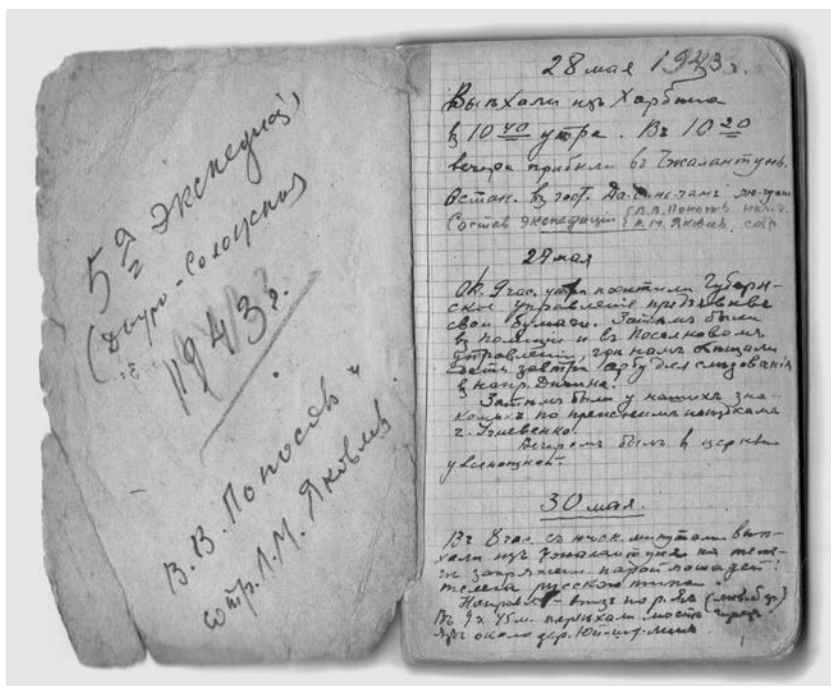 5ая экспедиція
1943 г.
В.В. Поносовъ и
сотр. А.М. Яковлев.
28 мая 1943 г.
Выѣхали изъ Харбина
въ 10 40 утра. Въ 10 20
вечера прибыли въ Чжалантунь.
Остан. въ гост.
Состав экспедиціи { В.В. Поносов нач.
А.М. Яковлев, сотр.
29 мая
Ок. 9 час. утра посѣтили Губерн-
ское управленіе предъявивъ
свои бумаги. Затѣмъ были
въ полиціи и въ Поселковомъ
управленіи, гдѣ намъ обѣщали
дать завтра арбу для слѣдованія
в напр.
Затѣмъ были у нашихъ зна-
комыхъ по прежнимъ поѣздкамъ
г.
Вечеромъ былъ в церкви
у всенощной.
30 мая.
Въ 8 час. съ минутами выѣ-
хали изъ Чжалантуня на теле-
гѣ запряжен. парой лошадей:
телега русского типа.
внизъ по р. Ял
Въ 9 ч 45 м. переѣхали мостъ через
Ял около дер.
1